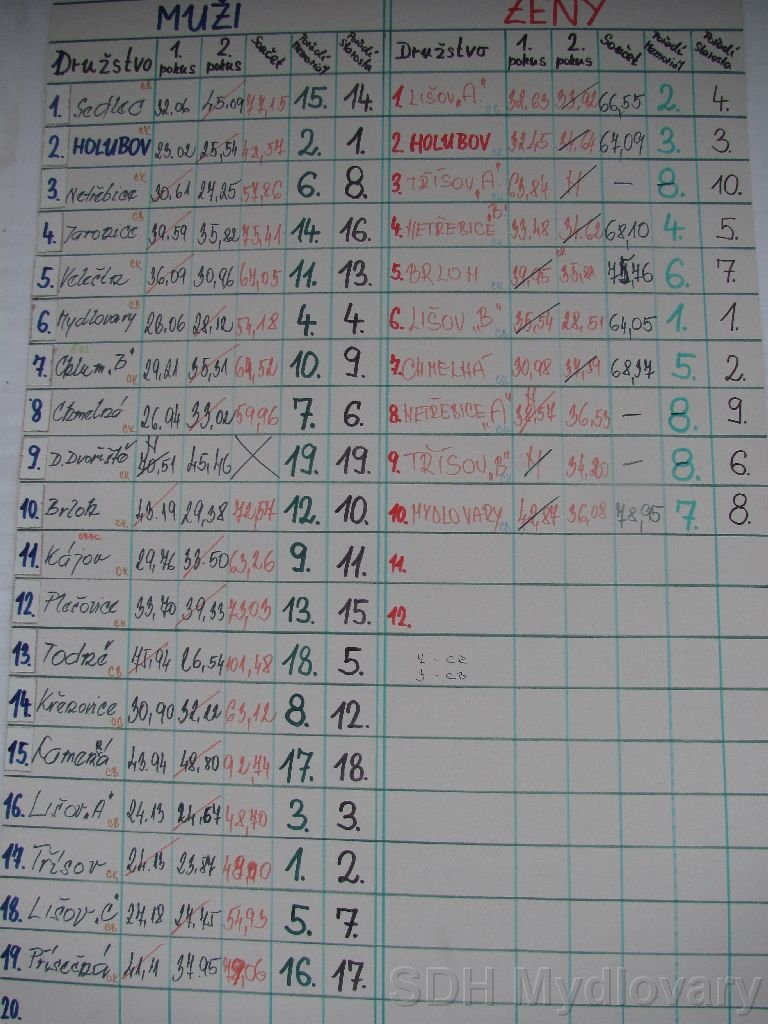 MUŽI ŽENY
Družstvo 1. pokus 2. pokus Součet Pořadí Memoriál Pořadí Starosta Družstvo 1. pokus 2. pokus Součet Pořadí Memoriál Pořadí Starosta
1. Sedlec CB 32.06 45.09 77,15 15. 14. 1. LIŠOV „A" CB 32.63 33,92 66,55 2. 4.
2. HOLUBOV CK 23.02 25,54 48,57 2. 1. 2. HOLUBOV CK 32.45 34.64 67,09 3. 3.
3. Netřebice CK 30,61 27,25 57,86 6. 8. 3. TŘÍSOV „A" CK 63,84 N — 8. 10.
4. Jaronice CB 39.59 35,82 75,41 14. 16. 4. NETŘEBICE „B" CK 33.48 34.62 68,10 4. 5.
5. Velešín CK 36,09 30,96 67,05 11. 13. 5. BRLOH CK 39,95 35,81 75,76 6. 7.
6. Mydlovary CB 26.06 28,12 54,18 4. 4. 6. LIŠOV „B" CB 35,54 28,51 64,05 1. 1.
7. Chlum „B" CK 29,21 35,31 64,52 10. 9. 7. CHMELNÁ CK 30,98 37,39 68,37 5. 2.
8 Chmelná CK 26.94 33,02 59,96 7. 6. 8. NETŘEBICE „A" CK N 38,57 36,53 — 8. 9.
9. D. Dvořiště CK N 70,51 45,46 19. 19. 9. TŘÍSOV „B" CK N 34,20 — 8. 6.
10. Brloh CK 43.19 29,38 72,57 12. 10. 10. MYDLOVARY CB 42,87 36,08 78,95 7. 8.
11. Kájov OBEC CK 29,76 33.50 63,26 9. 11. 11.
12. Plešovice CK 33,70 39,33 73,03 13. 15. 12.
13. Todně CB 26,54 101,48 18. 5.
14. Křenovice CB 30,90 32,22 63,12 8. 12.
15. Kamenná CB 43.94 48,80 92,74 17. 18.
16. Lišov „A" CB 24.13 24,57 48,70 3. 3.
17. Třísov CK 24.13 23.87 48,00 1. 2.
18. Lišov „C" CB 27,18 27,75 54,93 5. 7.
19. Přísečná CK 41,11 37.95 79,06 16. 17.
20.
SDH Mydlovary